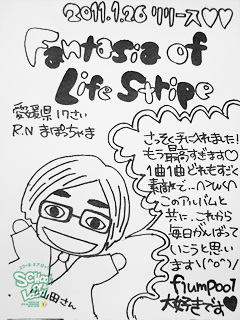 2011.1.26 リリース♡♡
Fantasia of
Life Stripe
愛媛県 17さい
R.N まぽちゃま
さっそく手に入れました!
もう最高すぎます♡
1曲1曲どれもすごく
素敵で…
このアルバムと
共に、これから
毎日がんばって
いこうと思い
ます\(^o^)/
flumpool
大好きです♥
山田さん
SCHOOL
OF
LOCK!